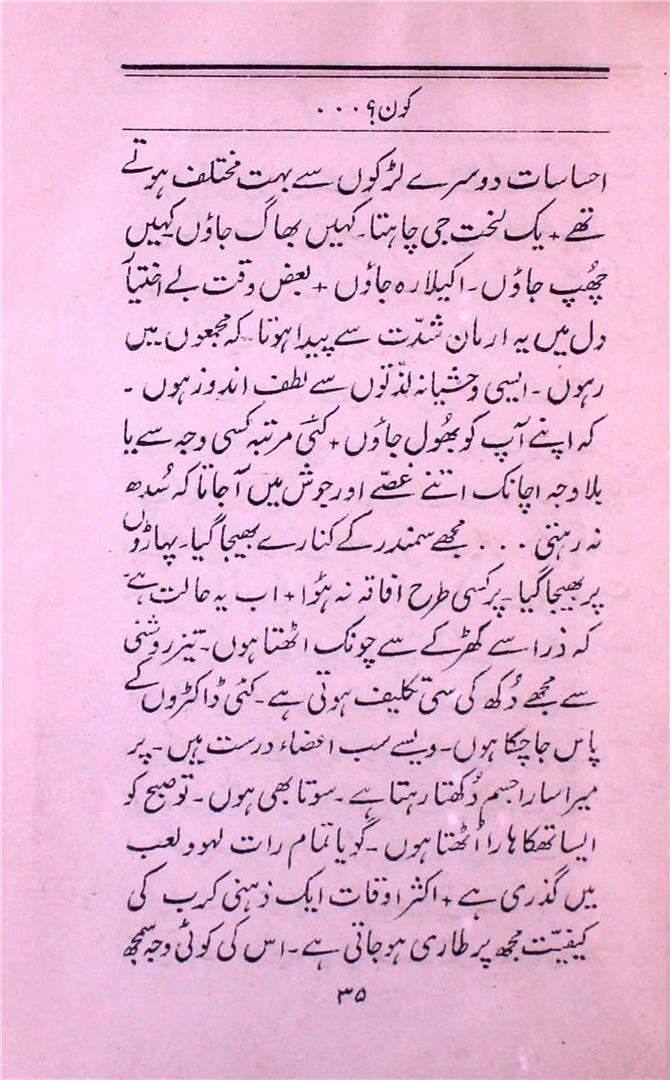 کون؟ ...
احساسات دوسرے لڑکوں سے بہت مختلف ہوتے
تھے + یک لخت جی چاہتا۔ کہیں بھاگ جاؤں کہیں
چھُپ جاؤں۔ اکیلا رہ جاؤں + بعض وقت بے اختیا
دل میں یہ ارمان شدّت سے پیدا ہوتا۔ کہ مجمعوں میں
رہوں۔ ایسی وحشیانہ لذّتوں سے لطف اندوز ہوں۔
کہ اپنے آپ کو بھُول جاؤں + کئی مرتبہ کسی وجہ سے یا
بلا وجہ اچانک اتنے غصّے اور جوش میں آجاتا کہ سُدھ
نہ رہتی ... مجھے سمندر کے کنارے بھیجا گیا۔ پہاڑوں
پر بھیجا گیا۔ پر کسی طرح افاقہ نہ ہؤا + اب یہ حالت ہے
کہ ذرا سے کھڑکے سے چونک اٹھتا ہوں۔ تیز روشنی
سے مجھے دُکھ کی سی تکلیف ہوتی ہے۔ کئی ڈاکٹروں کے
پاس جا چکا ہوں۔ ویسے سب اعضاء درست ہیں۔ پر
میرا سارا جسم دُکھتا رہتا ہے۔ سوتا بھی ہوں۔ تو صبح کو
ایسا تھکا ہارا اُٹھتا ہوں۔ گویا تمام رات لہو و لعب
میں گذری ہے + اکثر اوقات ایک ذہنی کرب کی
کیفیّت مجھ پر طاری ہو جاتی ہے۔ اس کی کوئی وجہ سمجھ
۳۵